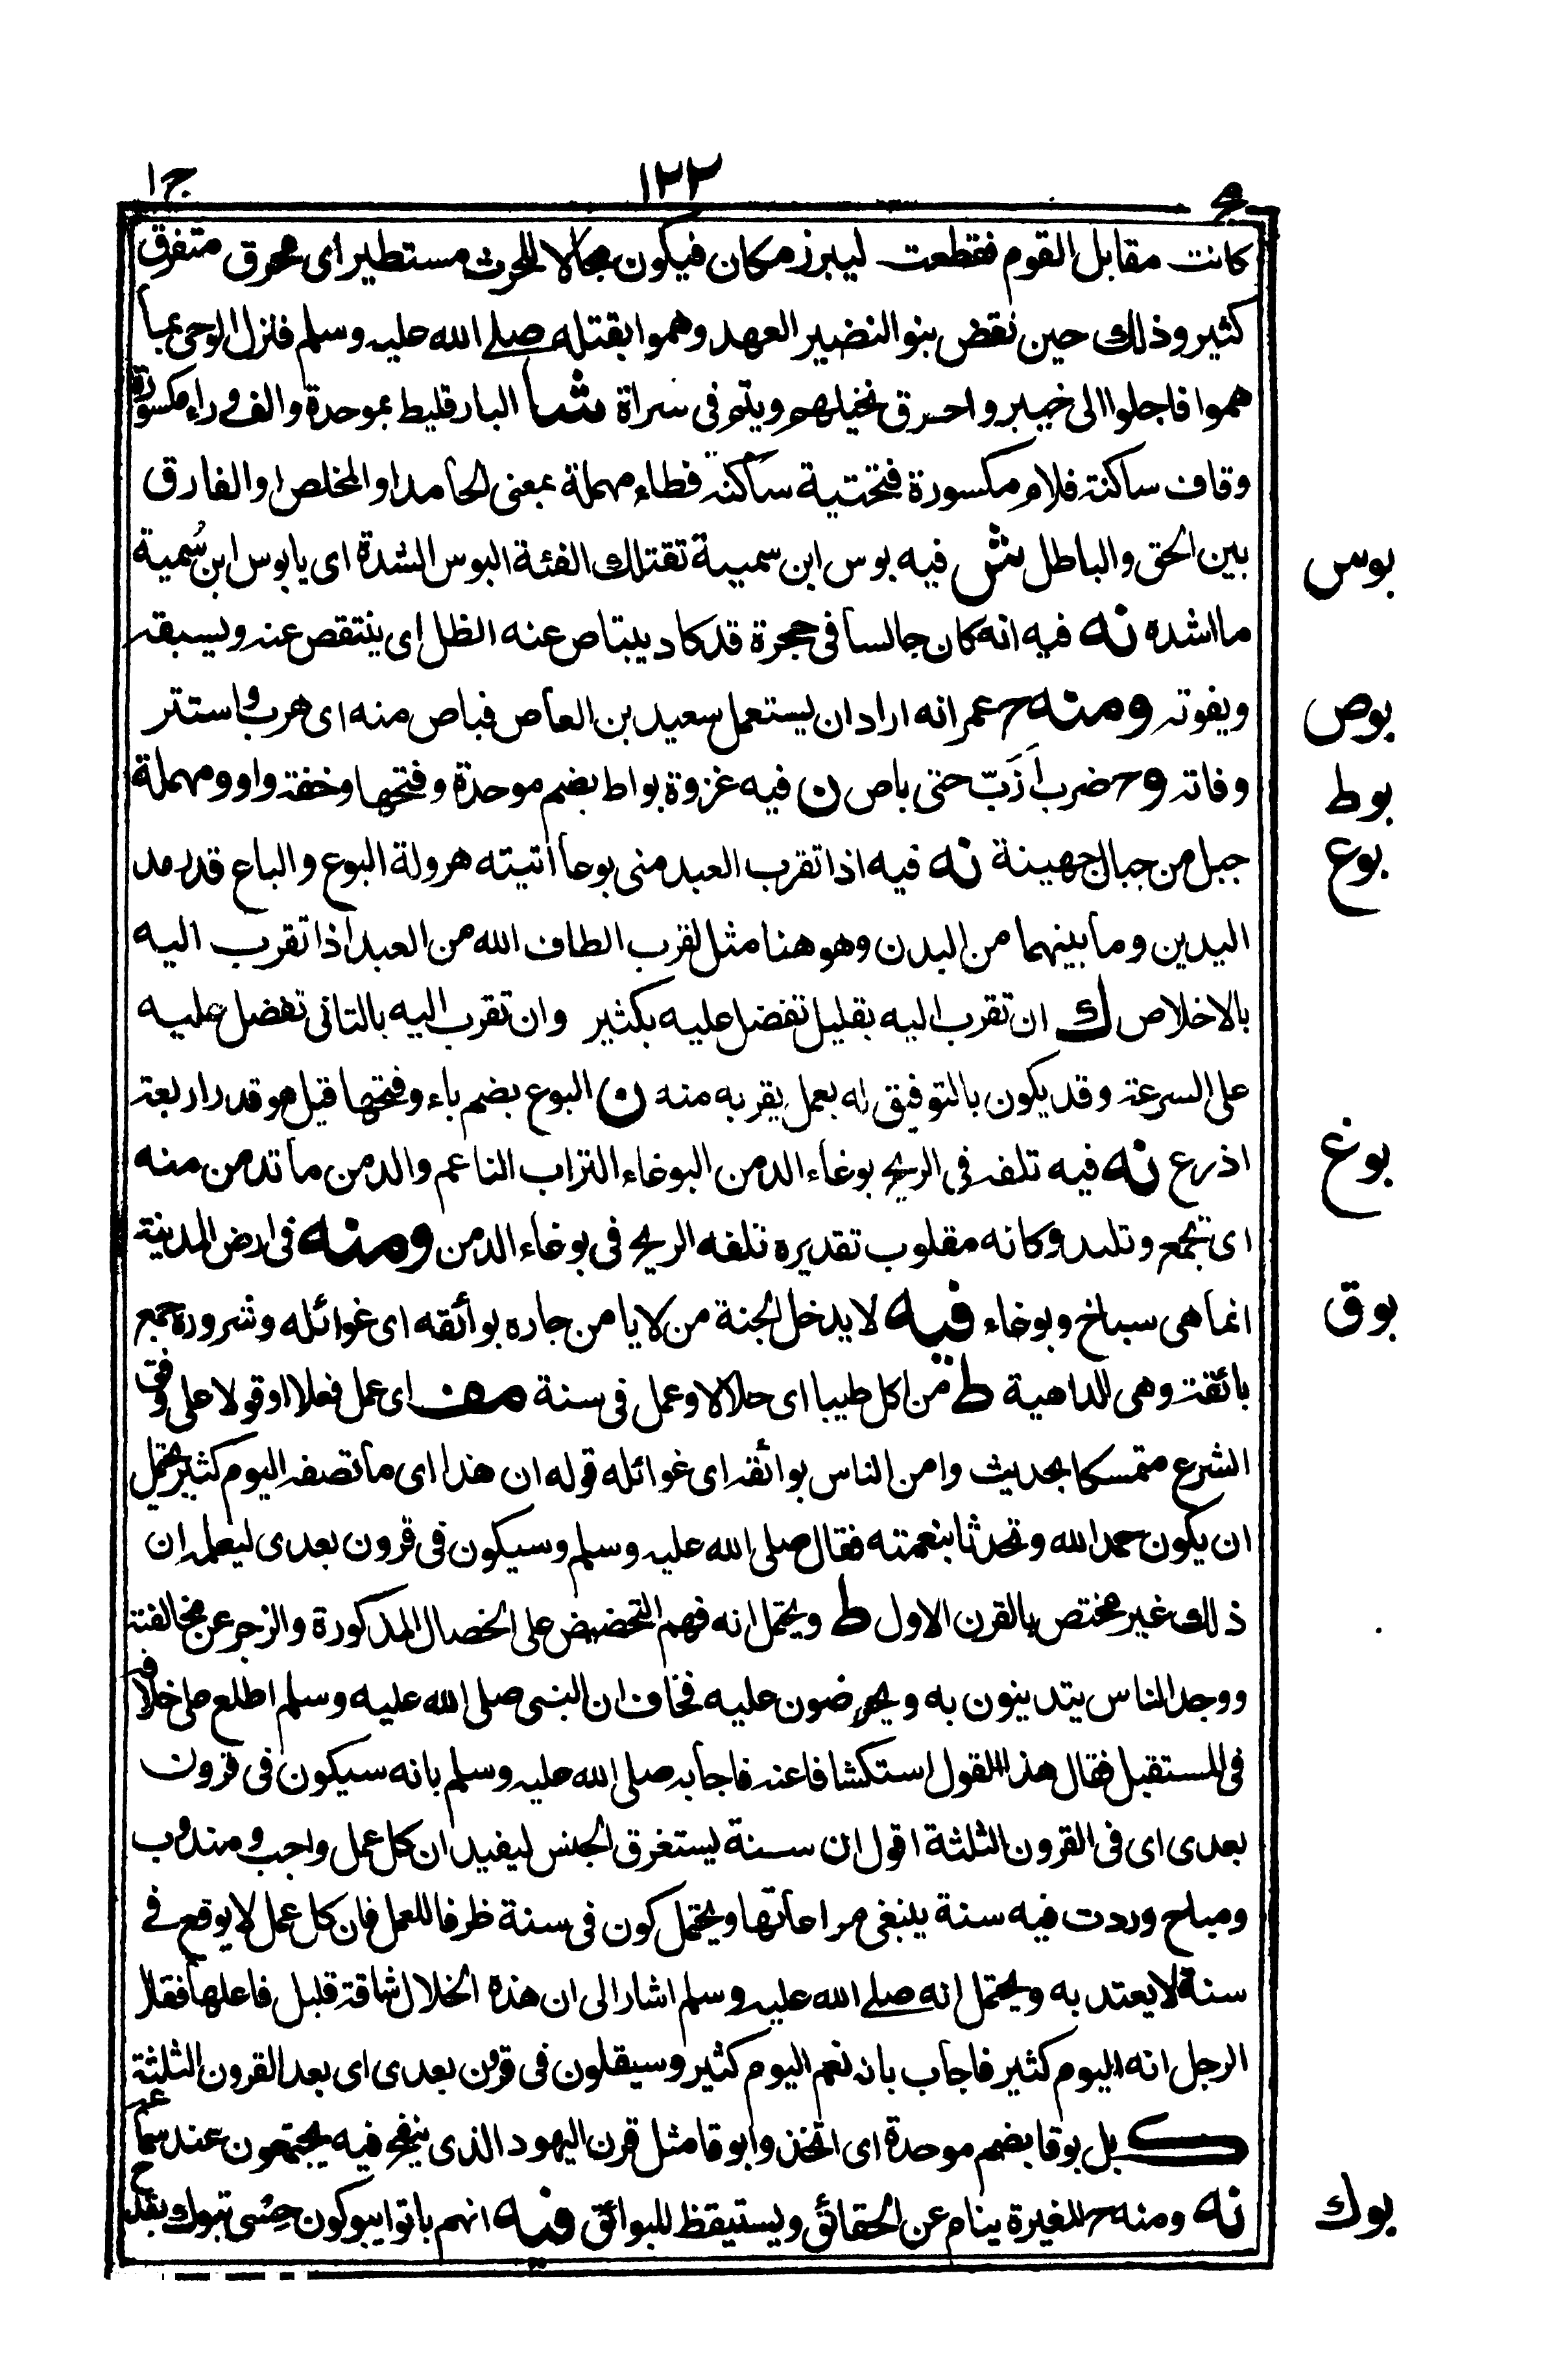 ج ١
١٢٢
كانت مقابل القوم فقطعت ليبرز مكان فيكون مجالا للحرث مستطير اى محرق متفرق
كثير وذلك حين نقض بنو النضير العهد وهموا بقتله صلے الله عليه وسلم فنزل الوحى بما
هموا فاجلوا الى خيبر واحرق نخيلهم ويتم فى سراة شا البارقليط بموحدة والف وراء مكسورة
وقاف ساكنة فلام مكسورة فتحتية ساكنة فطاء مهملة بمعنى الحامد او المخلص او الفارق
بين الحق والباطل ش فيه بوس ابن سمية تقتلك الفئة البوس الشدة اى يا بوس ابن سُمية
بوس
ما اشده نه فيه انه كان جالسا فى حجرة قد كاد يبتاص عنه الظل اى ينتقص عنه ويسبقه
ويفوته ومنه ح عمر انه اراد ان يستعمل سعيد بن العاص فباص منه اى هرب واستتر
بوص
وفاته وح ضرب اَزَبّ حتى باص ن فيه غزوة بواط بضم موحدة وفتحها وخفة واو ومهملة
بوط
جبل من جبال جهينة نه فيه اذا تقرب العبد منى بوعا اتيته هرولة البوع والباع قدر مد
بوع
اليدين وما بينهما من البدن وهو هنا مثل لقرب الطاف الله من العبد اذا تقرب اليه
بالاخلاص ك ان تقرب اليه بقليل تفضل عليه بكثير وان تقرب اليه بالتانى تفضل عليه
على السرعة وقد يكون بالتوفيق له بعمل يقربه منه ن البوع بضم باء وفتحها قيل هو قدر اربعة
اذرع نه فيه تلفه فى الريح بوغاء الدمن البوغاء التراب الناعم والدمن ما تدمن منه
بوغ
اى تجمع وتلبد وكانه مقلوب تقديره تلفه الريح فى بوغاء الدمن ومنه فى ارض المدينة
انما هى سباخ وبوغاء فيه لا يدخل الجنة من لا يامن جاره بوائقه اى غوائله وشروره جمع
بوق
بائقة وهى الداهية ط من اكل طيبا اى حلالا وعمل فى سنة مف اى عمل فعلا او قولا على وفق
الشرع متمسكا بحديث وامن الناس بوائقه اى غوائله قوله ان هذا اى ما تصفه اليوم كثير يحتمل
ان يكون حمد الله وتحدثا بنعمته فقال صلى الله عليه وسلم وسيكون فى قرون بعدى ليعلم ان
ذلك غير مختص بالقرن الاول ط ويحتمل انه فهم التحضيض على الخصال المذكورة والزجر عن مخالفته
ووجد الناس يتدينون به ويحرضون عليه فخاف ان النبى صلى الله عليه وسلم اطلع على خلافه
فى المستقبل فقال هذا القول استكشافا عنه فاجابه صلى الله عليه وسلم بانه سيكون فى قرون
بعدى اى فى القرون الثلثة اقول ان سنة يستغرق الجنس ليفيد ان كل عمل واجب ومندوب
ومباح وردت فيه سنة ينبغى مراعاتها ويحتمل كون فى سنة ظرفا للعمل فان كل عمل لا يوقع فے
سنة لا يعتد به ويحتمل انه صلے الله عليه وسلم اشار الى ان هذه الخلال شاقة قليل فاعلها فقال
الرجل انه اليوم كثير فاجاب بانه نعم اليوم كثير وسيقلون فى قرن بعدى اى بعد القرون الثلثة
ك بل بوقا بضم موحدة اى اتخذوا بوقا مثل قرن اليهود الذى ينفخ فيه يجتمعون عند سماعه
نه ومنه ح المغيرة ينام عن الحقائق ويستيقظ للبوائق فيه انهم باتوا يبوكون حِسْى تبوك بقدح
بوك